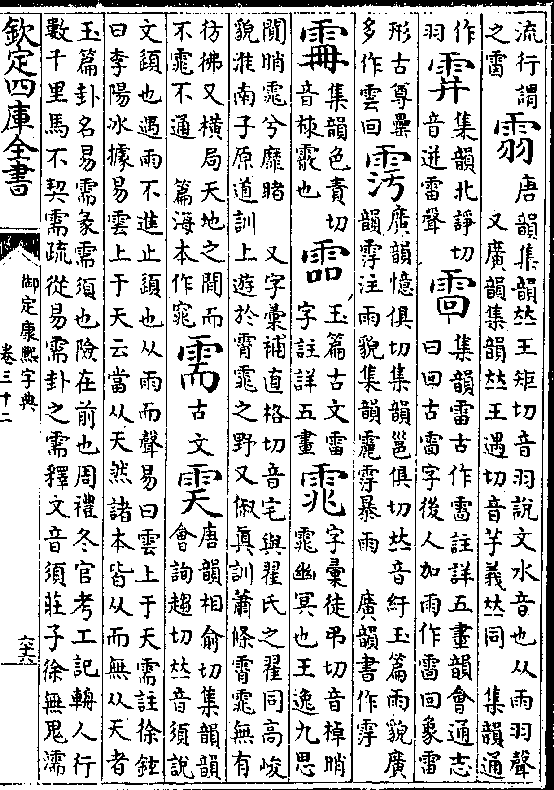 流行謂
之霤
䨒
唐韻集韻𠀤王矩切音羽說文水音也从雨羽聲
又廣韻集韻𠀤王遇切音芋義𠀤同　集韻通
作
羽
集韻北諍切
音迸雷聲
集韻雷古作註詳五畫韻會通志
曰回古雷字後人加雨作雷回象雷
形古尊罍
多作雲回
廣韻憶俱切集韻邕俱切𠀤音紆玉篇雨貌廣
韻注雨貌集韻暴雨　廣韻書作
集韻色責切
音也
玉篇古文雷
字註詳五畫
雿
字彙徒弔切音棹睄
雿幽冥也王逸九思
闃睄雿兮靡睹　又字彙補直格切音宅與翟氏之翟同高峻
貌淮南子原道訓上遊於霄雿之野又俶真訓蕭條霄雿無有
彷彿又橫局天地之間而
不雿不通　篇海本作窕
需
古文
唐韻相俞切集韻韻
會詢趨切𠀤音須說
文也遇雨不進止也从雨而聲易曰雲上于天需註徐鉉
曰李陽冰據易雲上于天云當从天然諸本皆从而無从天者
玉篇卦名易需彖需須也險在前也周禮冬官考工記輈人行
數千里馬不契需疏從易需卦之需釋文音須莊子徐無鬼濡
欽定四庫全書
御定康熙字典
卷三十二
六十六